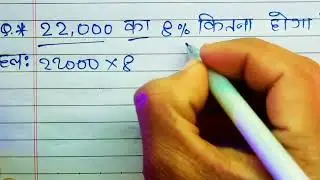 Q.* 22,000 का 8% कितना होगा
हल: 22000 × 8